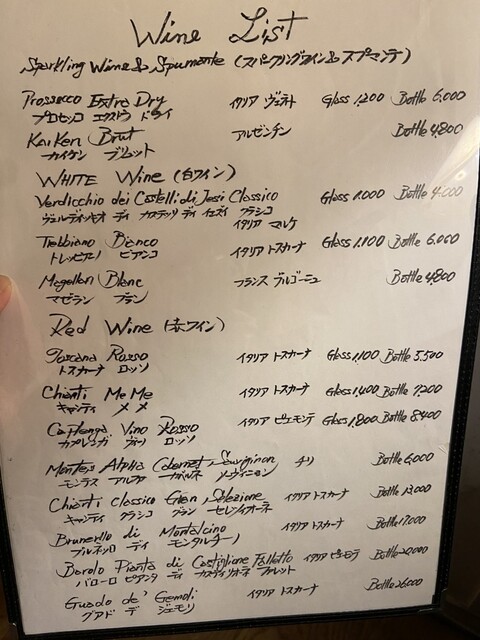 Wine List
Sparkling Wine & Spumante (スパークリングワイン&スプマンテ)
Prossecco Extra Dry イタリア ヴェネト Glass 1,200 Bottle 6,000
プロセッコ エクストラ ドライ
Kaiken Brut アルゼンチン Bottle 4,800
カイケン ブルット
WHITE Wine (白ワイン)
Verdicchio dei Castelli di Jesi Classico Glass 1,000 Bottle 4,000
ヴェルディッキオ ディ カステッリ ディ イェズィ クラシコ
イタリア マルケ
Trebbiano Bianco イタリア トスカーナ Glass 1,100 Bottle 6,060
トレッビアーノ ビアンコ
Magellan Blanc フランス ブルゴーニュ Bottle 4,800
マゼラン ブラン
Red Wine (赤ワイン)
Toscana Rosso イタリア トスカーナ Glass 1,100 Bottle 5,500
トスカーナ ロッソ
Chianti MeMe イタリア トスカーナ Glass 1,400 Bottle 7,200
キャンティ メメ
Vino Rosso イタリア ピエモンテ Glass 1,800 Bottle 8,400
ロッソ
Montes Alpha Cabernet Sauvignon チリ Bottle 6,000
モンテス アルファ カベルネ ソーヴィニョン
Chianti Classico Gran Selezione イタリア トスカーナ Bottle 13,000
キャンティ クラシコ グラン セレツィオーネ
Brunello di Montalcino イタリア トスカーナ Bottle 17,000
ブルネッロ ディ モンタルチーノ
Barolo Pianta di Castiglione Falletto イタリア ピエモンテ Bottle 20,000
バローロ ピアンタ ディ カスティリオーネ ファレット
Guado de' Gemoli イタリア トスカーナ Bottle 26,000
グアド デ ジェモリ